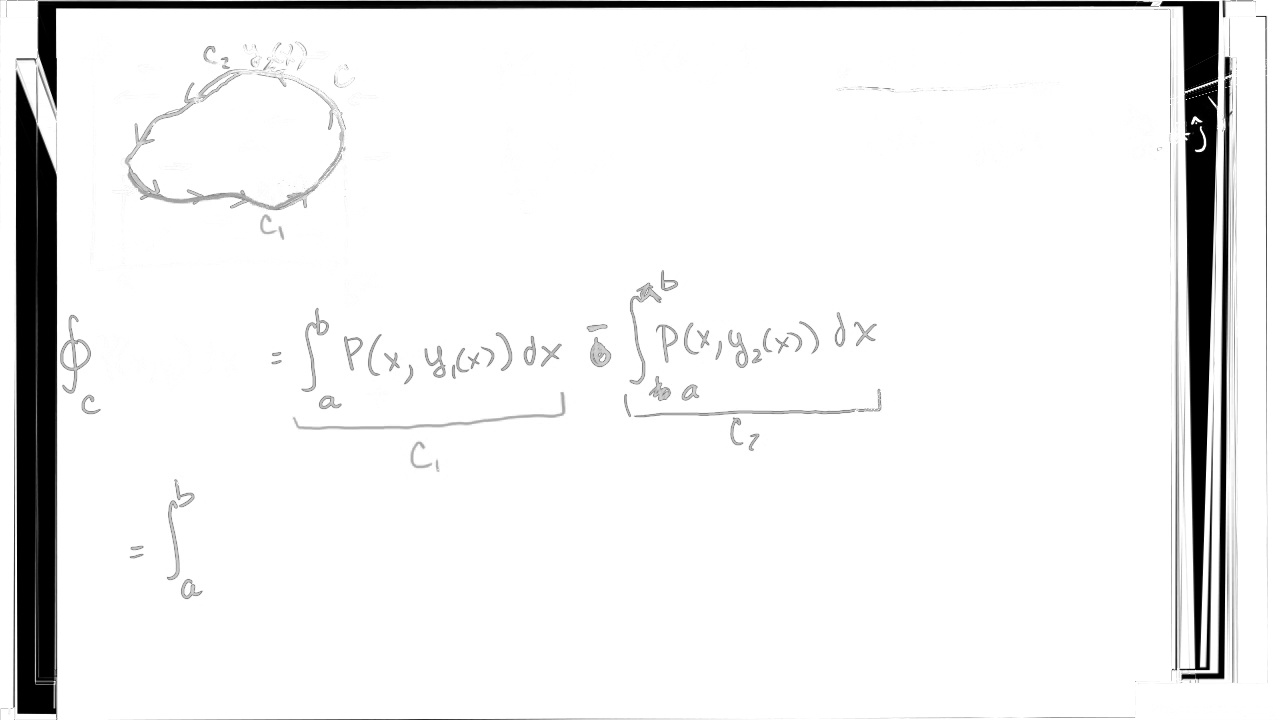 C₂ y₂(x) C
C₁
ĵ
∮_C = ∫_a^b P(x, y₁(x)) dx - ∫_a^b P(x, y₂(x)) dx
C₁ C₂
= ∫_a^b